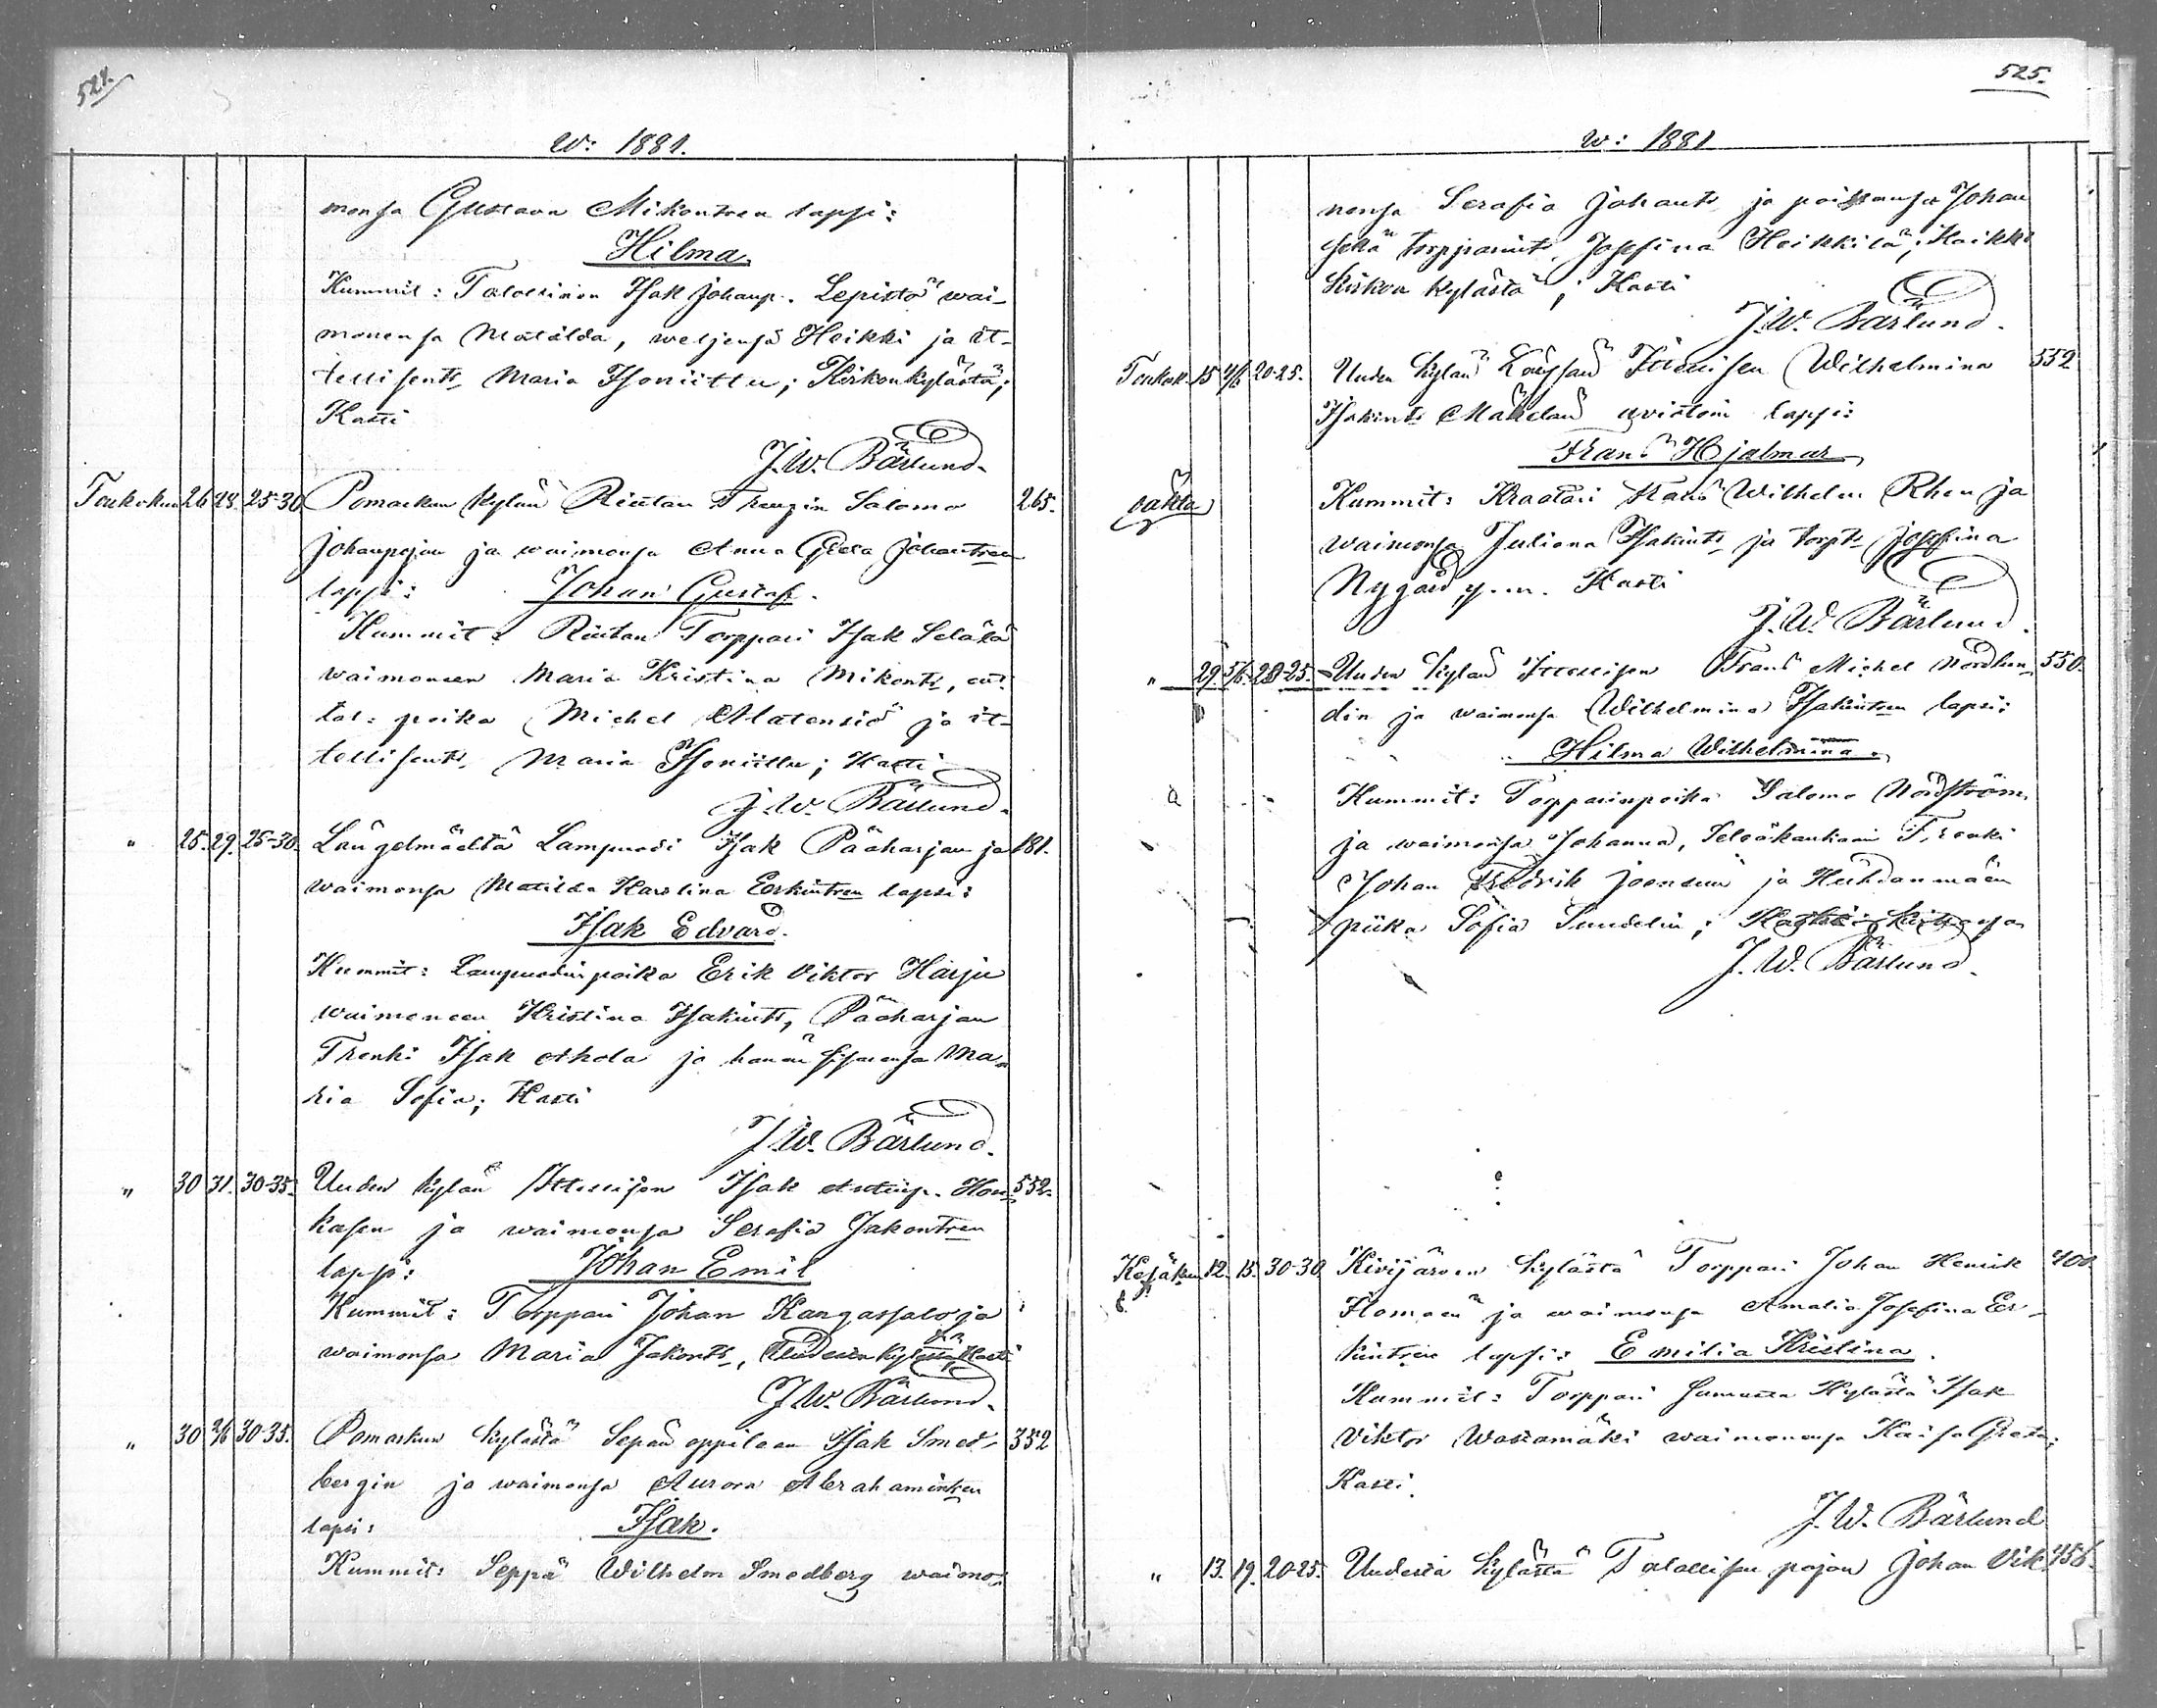 524.
W: 1881.
monsa Gustava Mikontren lapsi:
Hilma.
Kummit: Talollinen Isak Johanp. Lepistö wai-
monensa Matilda, weljensä Heikki ja it-
tellisentr Maria Isoniittu; Kirkonkylästä;
Kasti
J. W. Bärlund.
Toukokuu 26 28. 25-30 Pomarkun kylän Riutan Trengin Salomo 265.
Johanpojan ja waimonsa Anna Greta Johantren
lapsi: Johan Gustaf.
Kummit: Riutan Torppari Isak
waimoneen Maria Kristina Mikontr,
tal: poika Michel ja it-
tellisentr. Maria Isoniittu; Kasti
J. W. Bärlund.
" 25. 29. 25-30. Längelmäeltä Lampuodi Isak Pääharjan ja 181.
waimonsa Matilda Karolina Eerkintren lapsi:
Isak Edvard.
Kummit: Lampuodinpoika Erik Viktor Harju
waimoneen Kristina Isakintr, Pääharjan
Trenki Isak ja hänen sisarensa Ma-
ria Sofia; Kasti
J. W. Bärlund.
" 30 31. 30-35. Uuden kylän Ittellisen Isak Anttinp. Hon- 552.
kasen ja waimonsa Serafia Jakontren
lapsi: Johan Emil
Kummit: Torppari Johan Kangassalo ja
waimonsa Maria Jakontr, Uudesta kylästä; Kasti
J. W. Bärlund.
" 30 2/6 30-35. Pomarkun kylästä Sepän oppilaan Isak Smed- 352
bergin ja waimonsa Aurora Abrahamintren
lapsi: Isak.
Kummit: Seppä Wilhelm Smedberg waimo-
525.
W: 1881
nensa Serafia Johantr. ja poikansa Johan
sekä torpparintr. Josefina Heikkilä; Kaikki
Kirkon kylästä; Kasti
J. W. Bärlund.
Toukok. 15 4/6 20-25. Uuden kylän Köyhän Ittellisen Wilhelmina 552
Isakintr Mäkelän aviotoin lapsi:
Frans Hjalmar
Kummit: Kraatari Frans Wilhelm Rhen ja
waimonsa Juliana Isakintr ja torptr Josefina
Nygård, y.m. Kasti
J. W. Bärlund.
" 29. 5/6. 20-25. Uuden kylän Ittellisen Frans Michel Nordlun- 550.
din ja waimonsa Wilhelmina Isakintren lapsi:
Hilma Wilhelmina.
Kummit: Torpparinpoika Salomo Nordström
ja waimonsa Johanna, Trenki
Johan Fredrik Joensuu ja
piika Sofia Sundelin;
J. W. Bärlund.
Kesäkuu 12. 15. 30-30 Kivijärven kylästä Torppari Johan Henrik 400.
ja waimonsa Amalia Josefina Eer-
kintren lapsi: Emilia Kristina.
Kummit: Torppari samasta kylästä Isak
Viktor Wastamäki waimonensa Kaisa Greta;
Kasti.
J. W. Bärlund
" 13. 19. 20-25. Uudesta kylästä Talollisen pojan Johan Vik- 456.